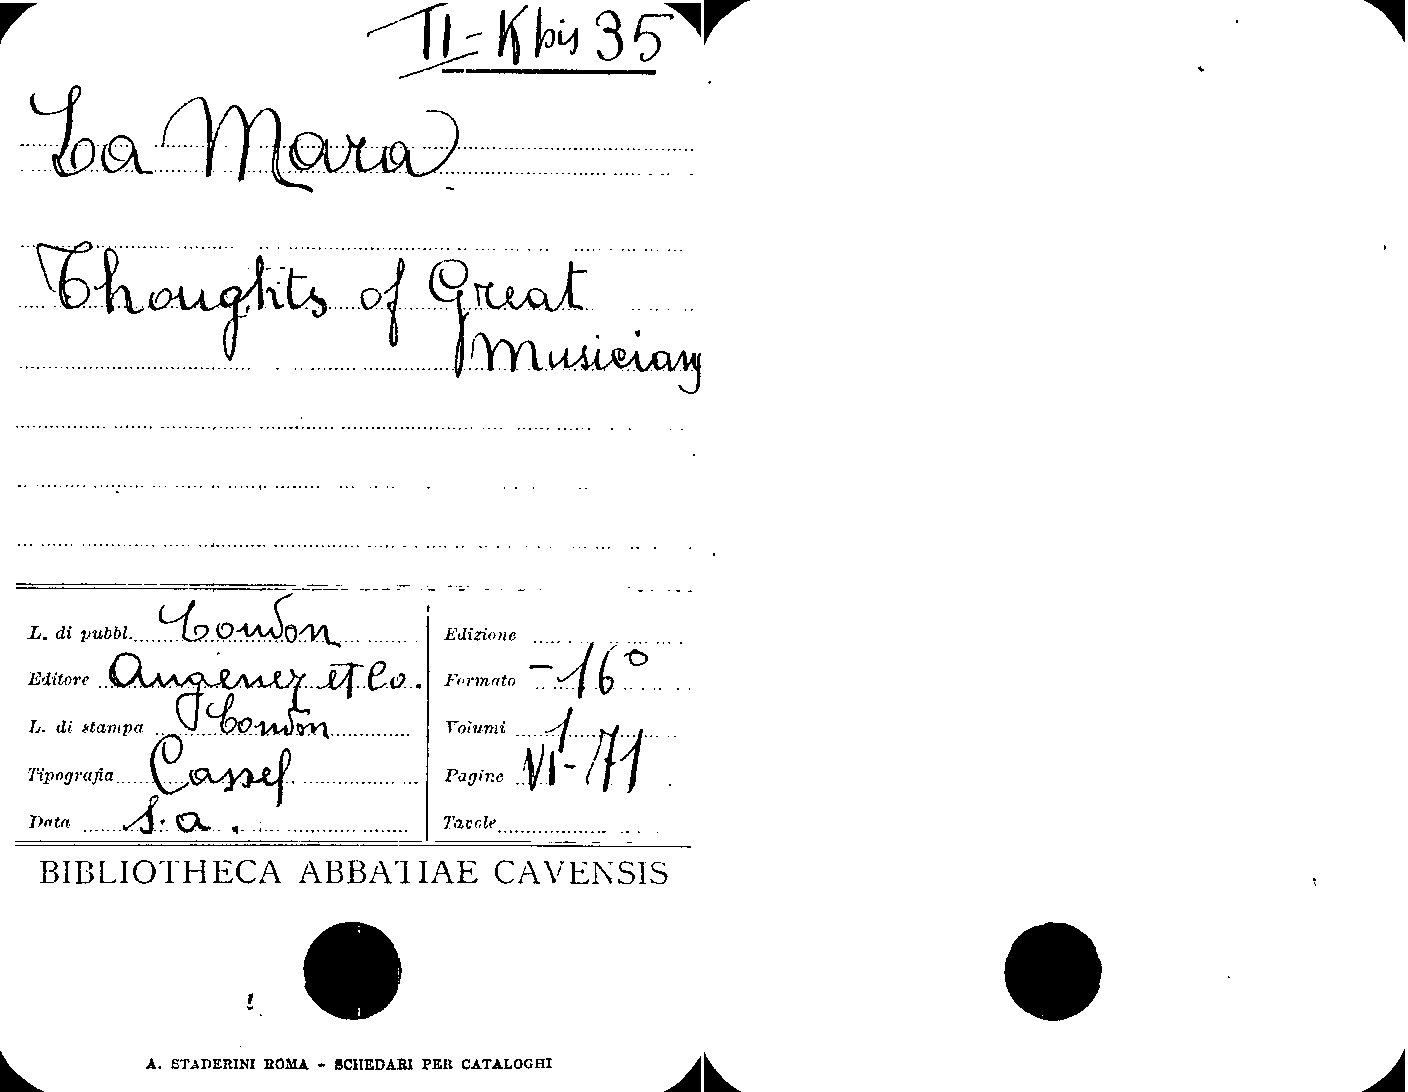 II-K bis 35
La Mara
Thoughts of Great
Musicians
L. di pubbl. London
Editore Augener et Co.
L. di stampa London
Tipografia Cassel
Data s.a.
Edizione
Formato -16°
Volumi 1
Pagine VI-171
Tavole
BIBLIOTHECA ABBATIAE CAVENSIS
A. STADERINI ROMA - SCHEDARI PER CATALOGHI